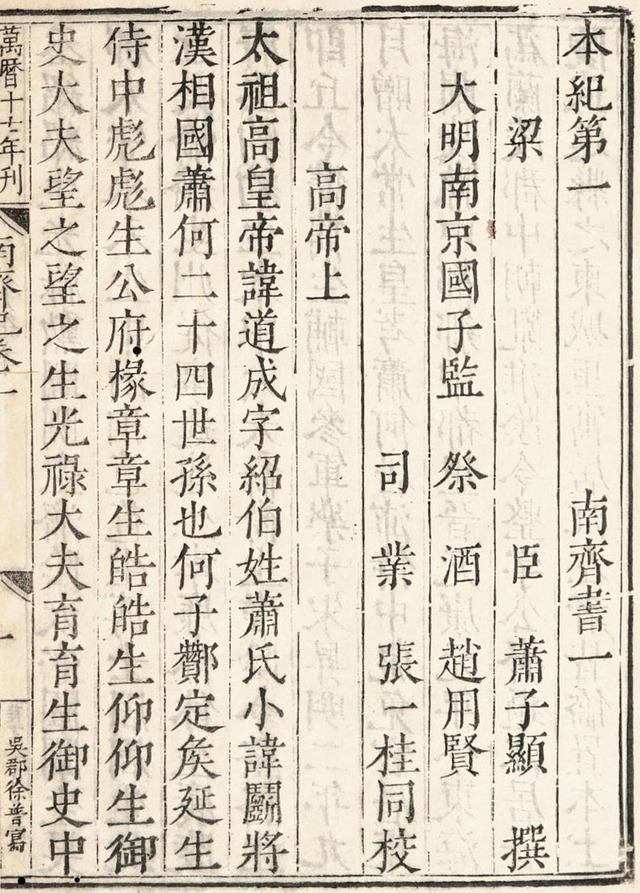 本紀第一　南齊書一
梁　臣　蕭子顯　撰
大明南京國子監　祭　酒　趙用賢
司　業　張一桂同校
高帝上
太祖高皇帝諱道成字紹伯姓蕭氏小諱鬭將
漢相國蕭何二十四世孫也何子酇定侯延生
侍中彪彪生公府掾章章生皓皓生仰仰生御
史大夫望之望之生光祿大夫育育生御史中
萬曆十七年刊　南齊紀卷一　一　吳郡徐普寫